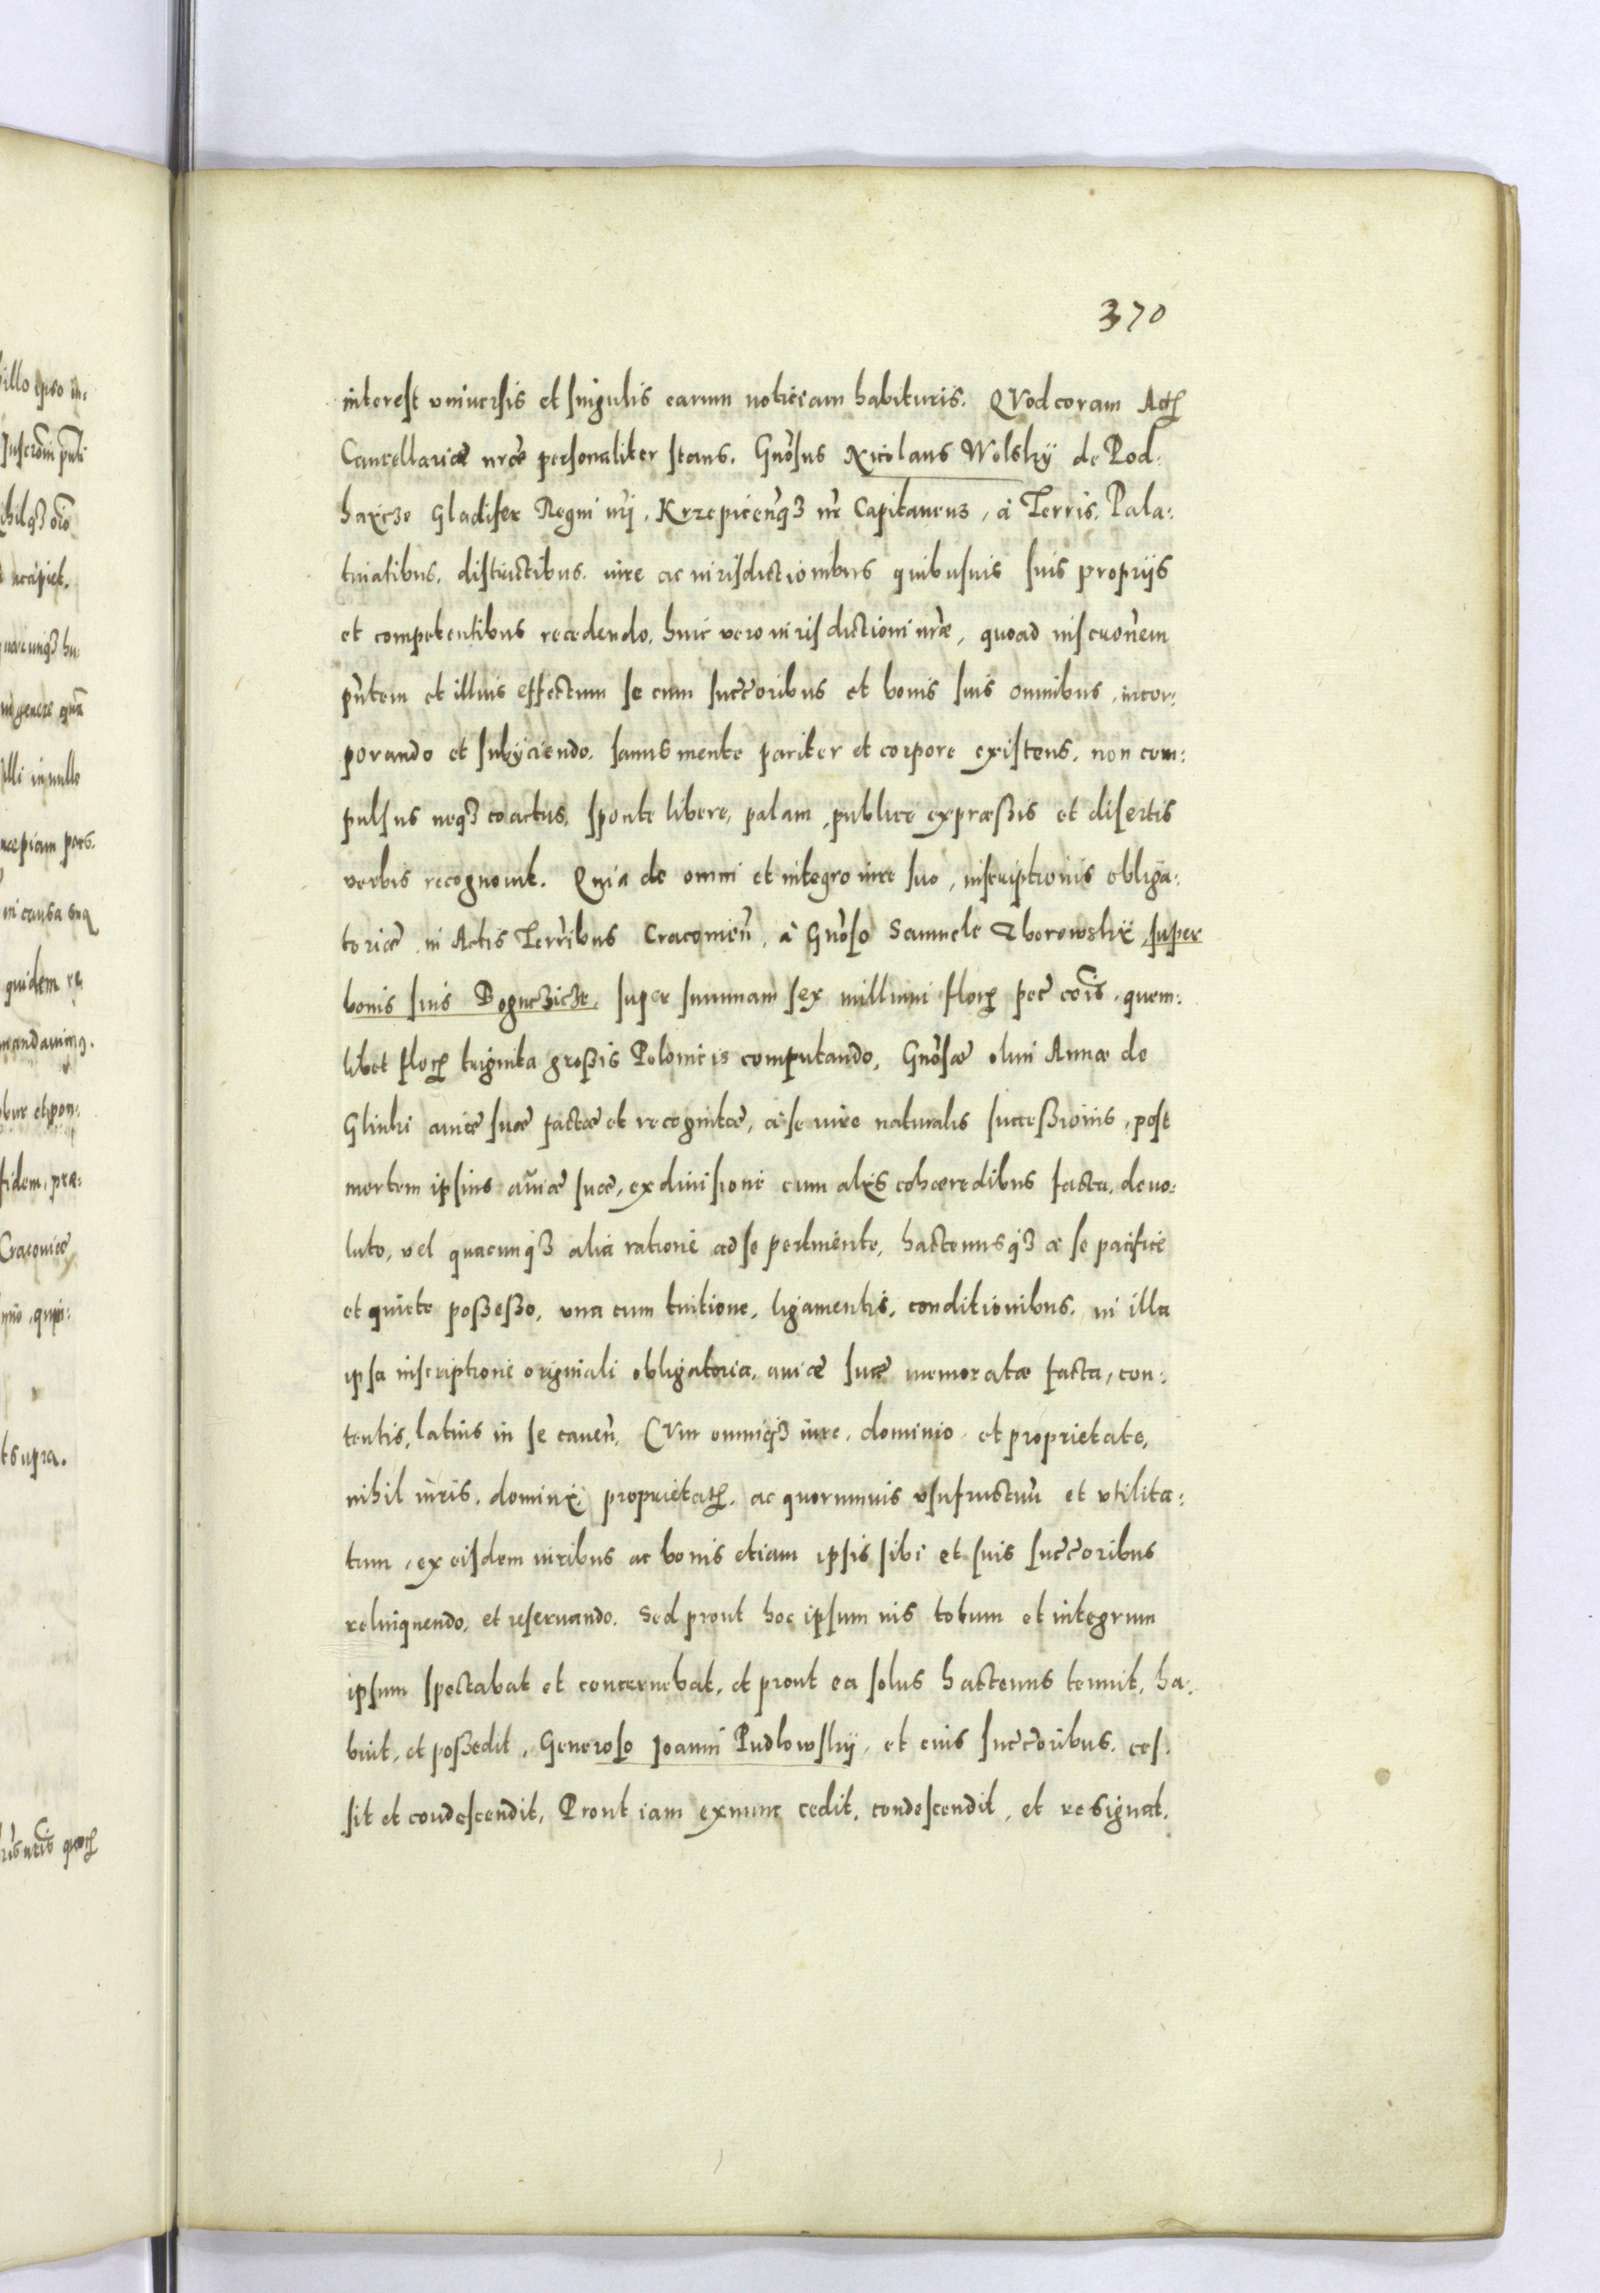 370
interest vniuersis et singulis earum noticiam habituris. QVod coram Act̄
Cancellariæ nr̄æ personaliter stans. Gnōsus Nicolaus Wolsky de Pod:
haycze Gladifer Regni nr̄i, Krzepicen̄q3 nr̄ Capitaneus, à Terris, Pala:
tinatibus, districtibus, iure ac iurisdictionibus quibusuis suis proprijs
et competentibus recedendo, huic vero iurisdictioni nr̄æ, quoad inscrōnem
pn̄tem et illius effectum se cum succ̄oribus et bonis suis omnibus, incor:
porando et subijciendo, sanus mente pariter et corpore existens, non com:
pulsus neq3 coactus, sponte libere, palam, publice expræßis et disertis
verbis recognouit. Quia de omni et integro iure suo, inscriptionis obliga:
toriæ in Actis Terr̄ibus Cracouien̄, à Gnōso Samuele Zborowsky super
bonis suis Bogucicze, super summam sex millium flor̄ pec̄ cōis, quem:
libet flor̄ triginta großis Polonicis computando, Gnōsæ olim Annæ de
Glinki auiæ suæ factæ et recognitæ, à se iure naturalis succeßionis, post
mortem ipsius auiæ suæ, ex diuisione cum alijs cohæredibus facta, deuo:
luto, vel quacunq3 alia ratione ad se pertinente, hactenusq3 a se pacifice
et quiete poßeßo, vna cum tuitione, ligamentis, conditionibus, in illa
ipsa inscriptione originali obligatoria, auiæ suæ memoratæ facta, con:
tentis, latius in se cauen̄. CVm omniq3 iure, dominio et proprietate,
nihil iuris, dominij, proprietat̄, ac quorumuis vsufructuū et vtilita:
tum, ex eisdem iuribus ac bonis etiam ipsis sibi et suis succ̄oribus
relinquendo, et reseruando. Sed prout hoc ipsum ius totum et integrum
ipsum spectabat et concernebat, et prout ea solus hactenus tenuit, ha:
buit, et poßedit, Generoso Joanni Pudlowsky, et eius succ̄oribus, ces:
sit et condescendit, Prout iam exnunc cedit, condescendit, et resignat.